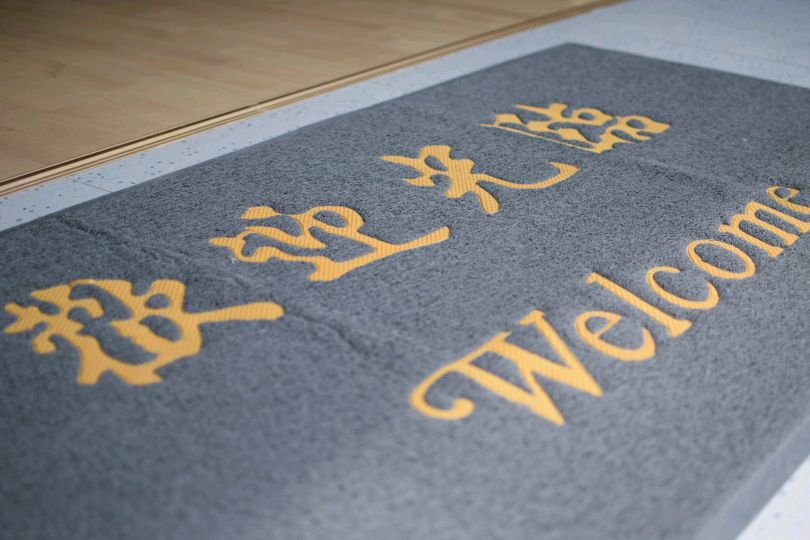 歡迎光臨
Welcome